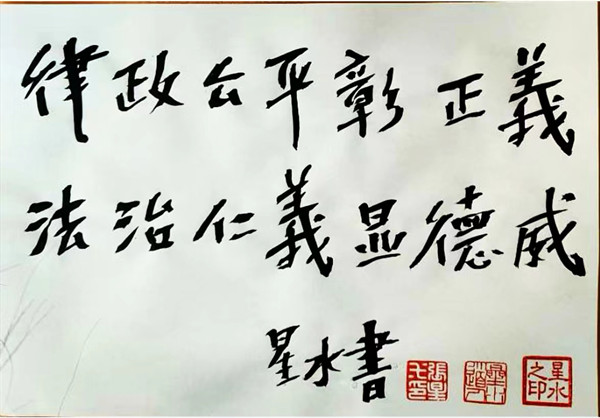 律政公平彰正義
法治仁義显德威
星水書
星水之印